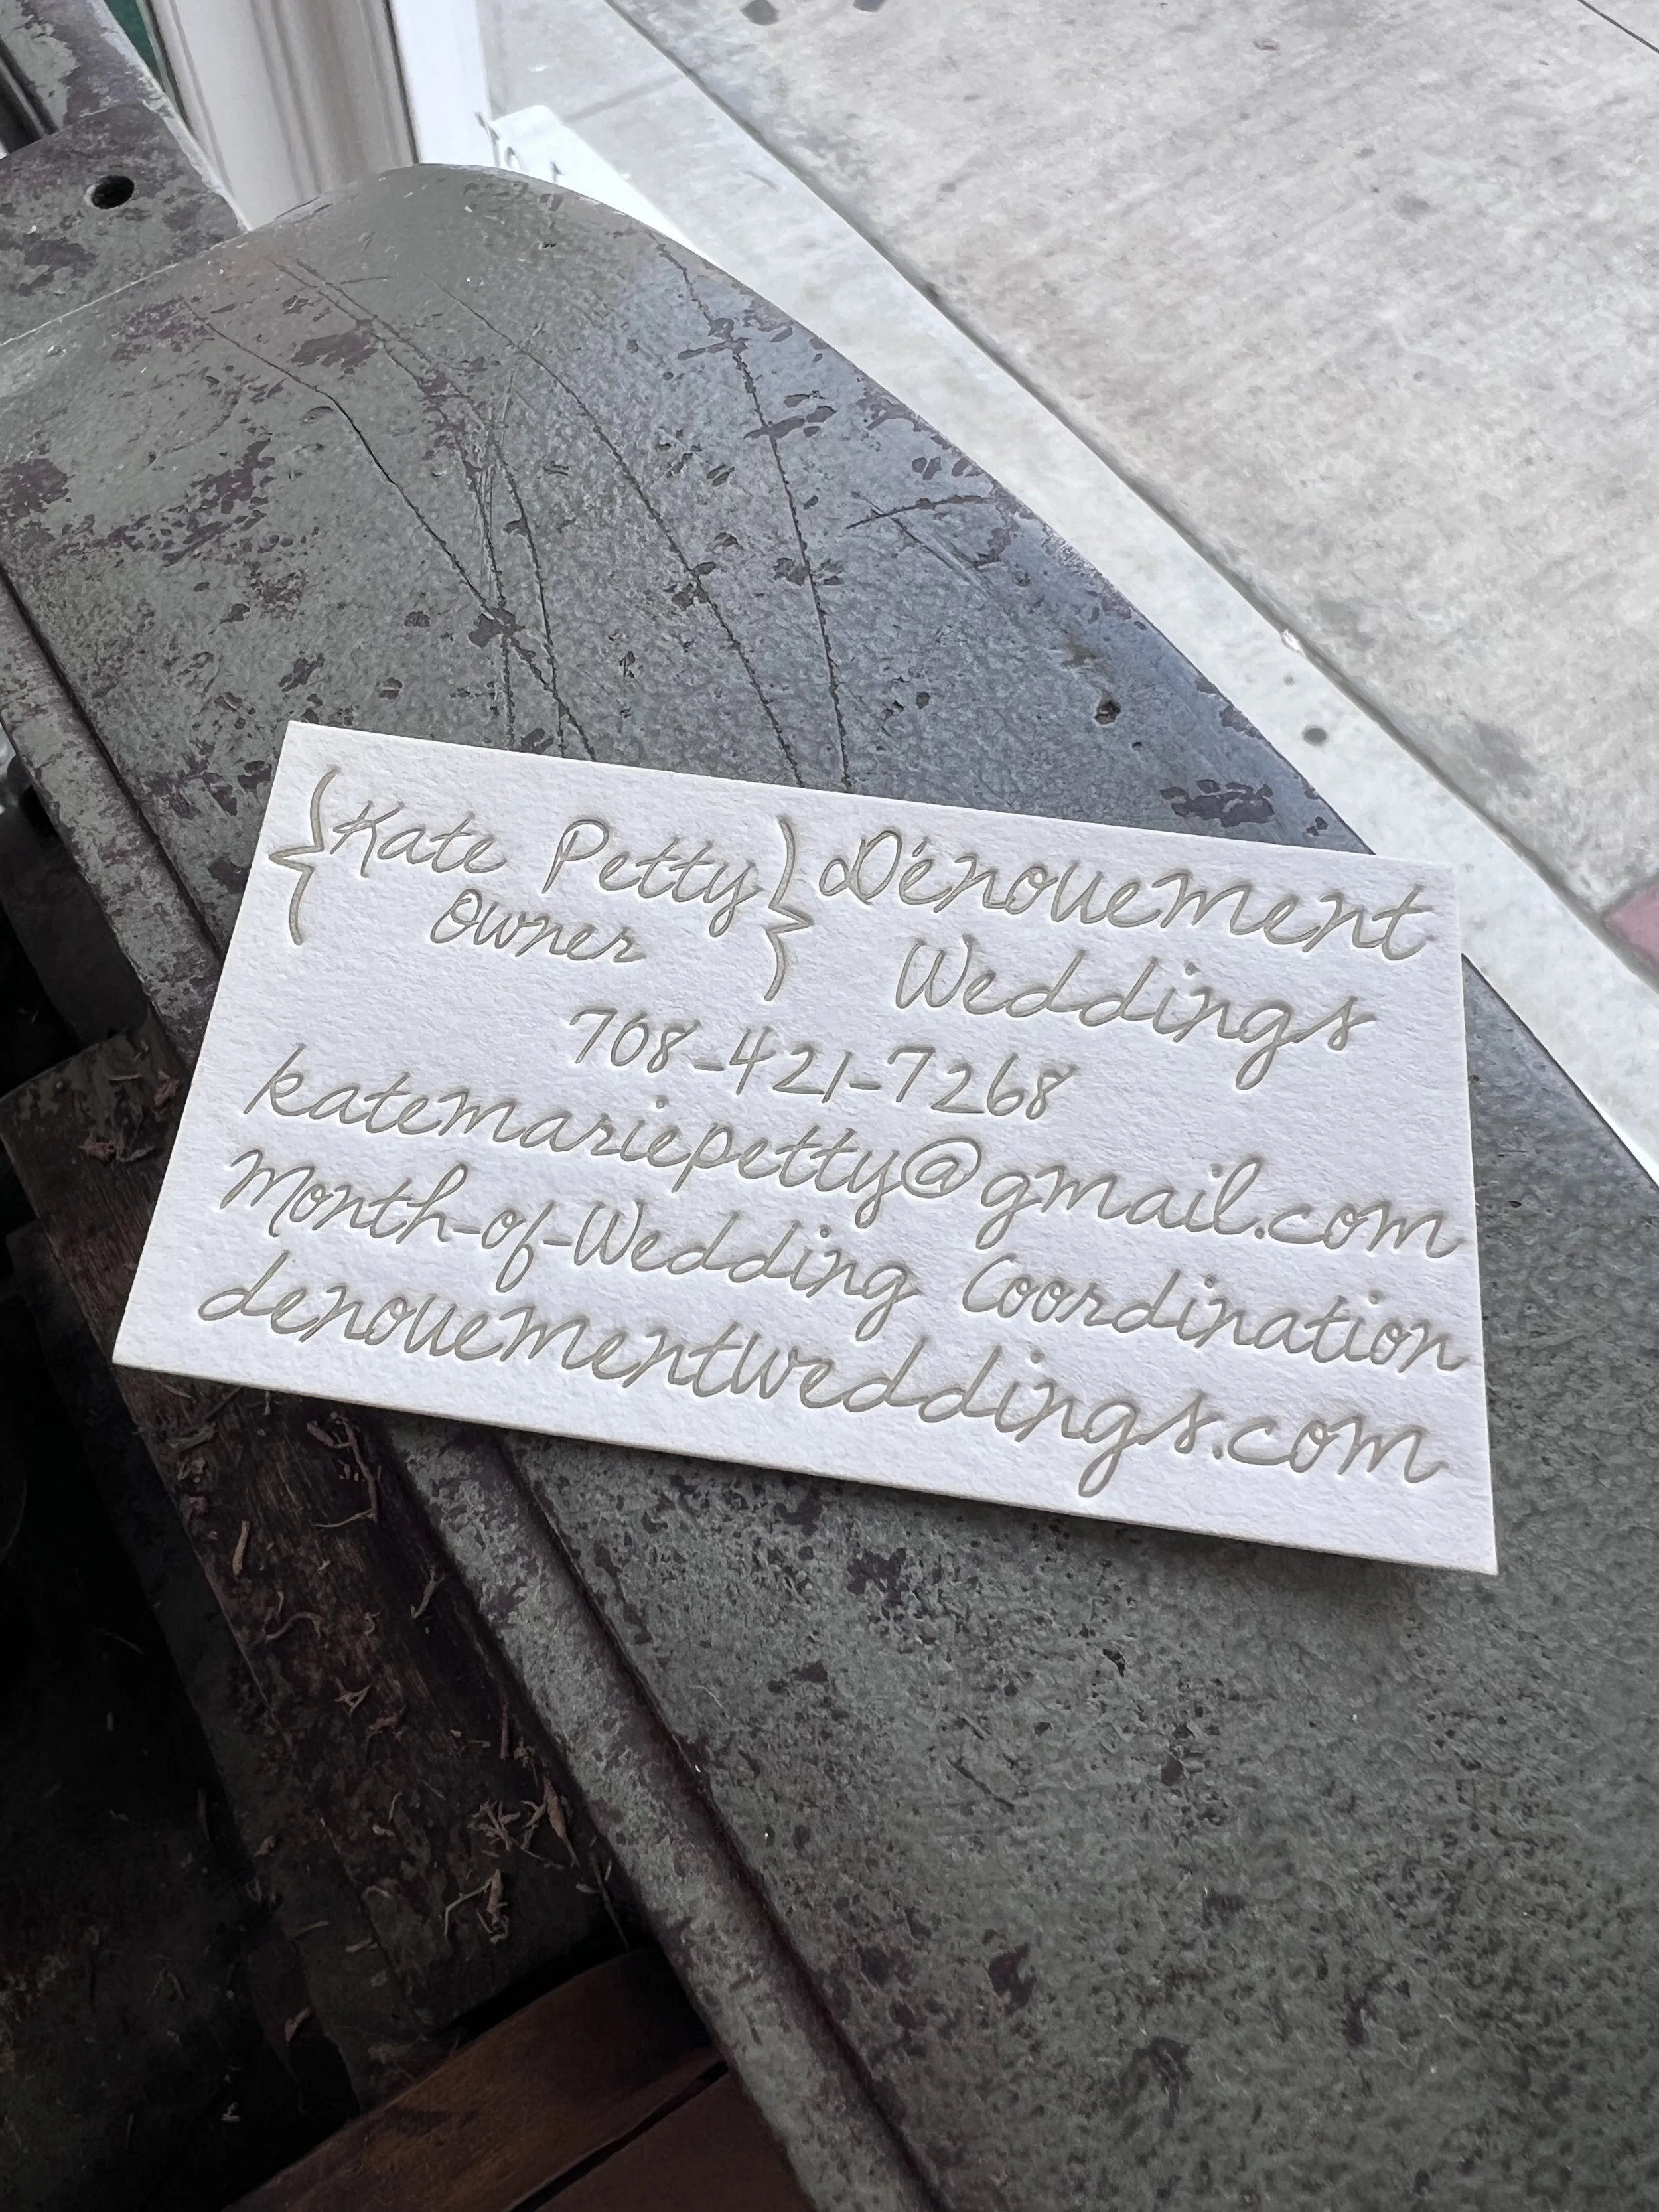 {Kate Petty} Dénouement
Owner Weddings
708-421-7268
katemariepetty@gmail.com
Month-of-Wedding Coordination
denouementweddings.com